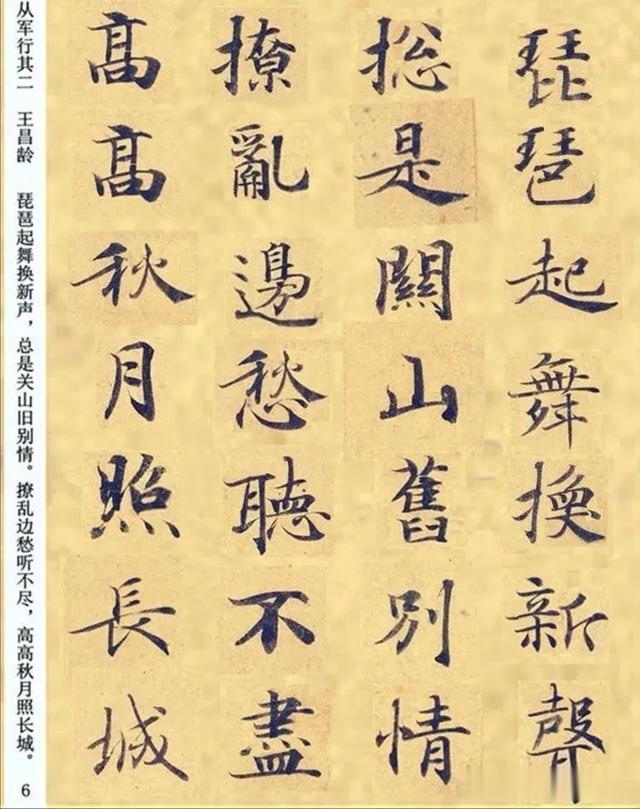 琵琶起舞換新聲
捴是關山舊別情
撩亂邊愁聽不盡
高高秋月照長城
从军行其二　王昌龄　琵琶起舞换新声，总是关山旧别情。撩乱边愁听不尽，高高秋月照长城。
6